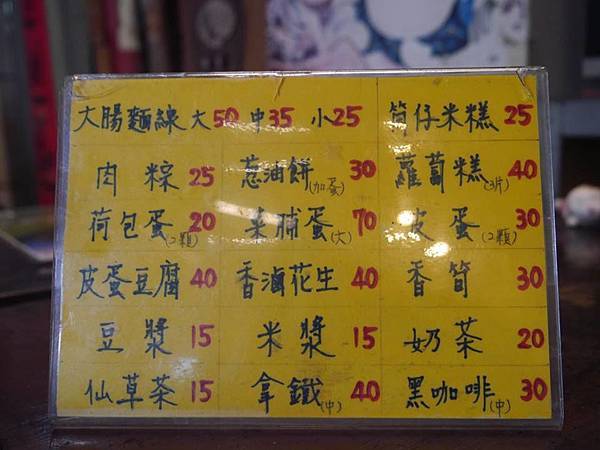 大腸麵線 大50 中35 小25 筒仔米糕 25
肉粽 25 蔥油餅(加蛋) 30 蘿蔔糕(3片) 40
荷包蛋(2顆) 20 菜脯蛋(大) 70 皮蛋(2顆) 30
皮蛋豆腐 40 香滷花生 40 香筍 30
豆漿 15 米漿 15 奶茶 20
仙草茶 15 拿鐵(中) 40 黑咖啡(中) 30